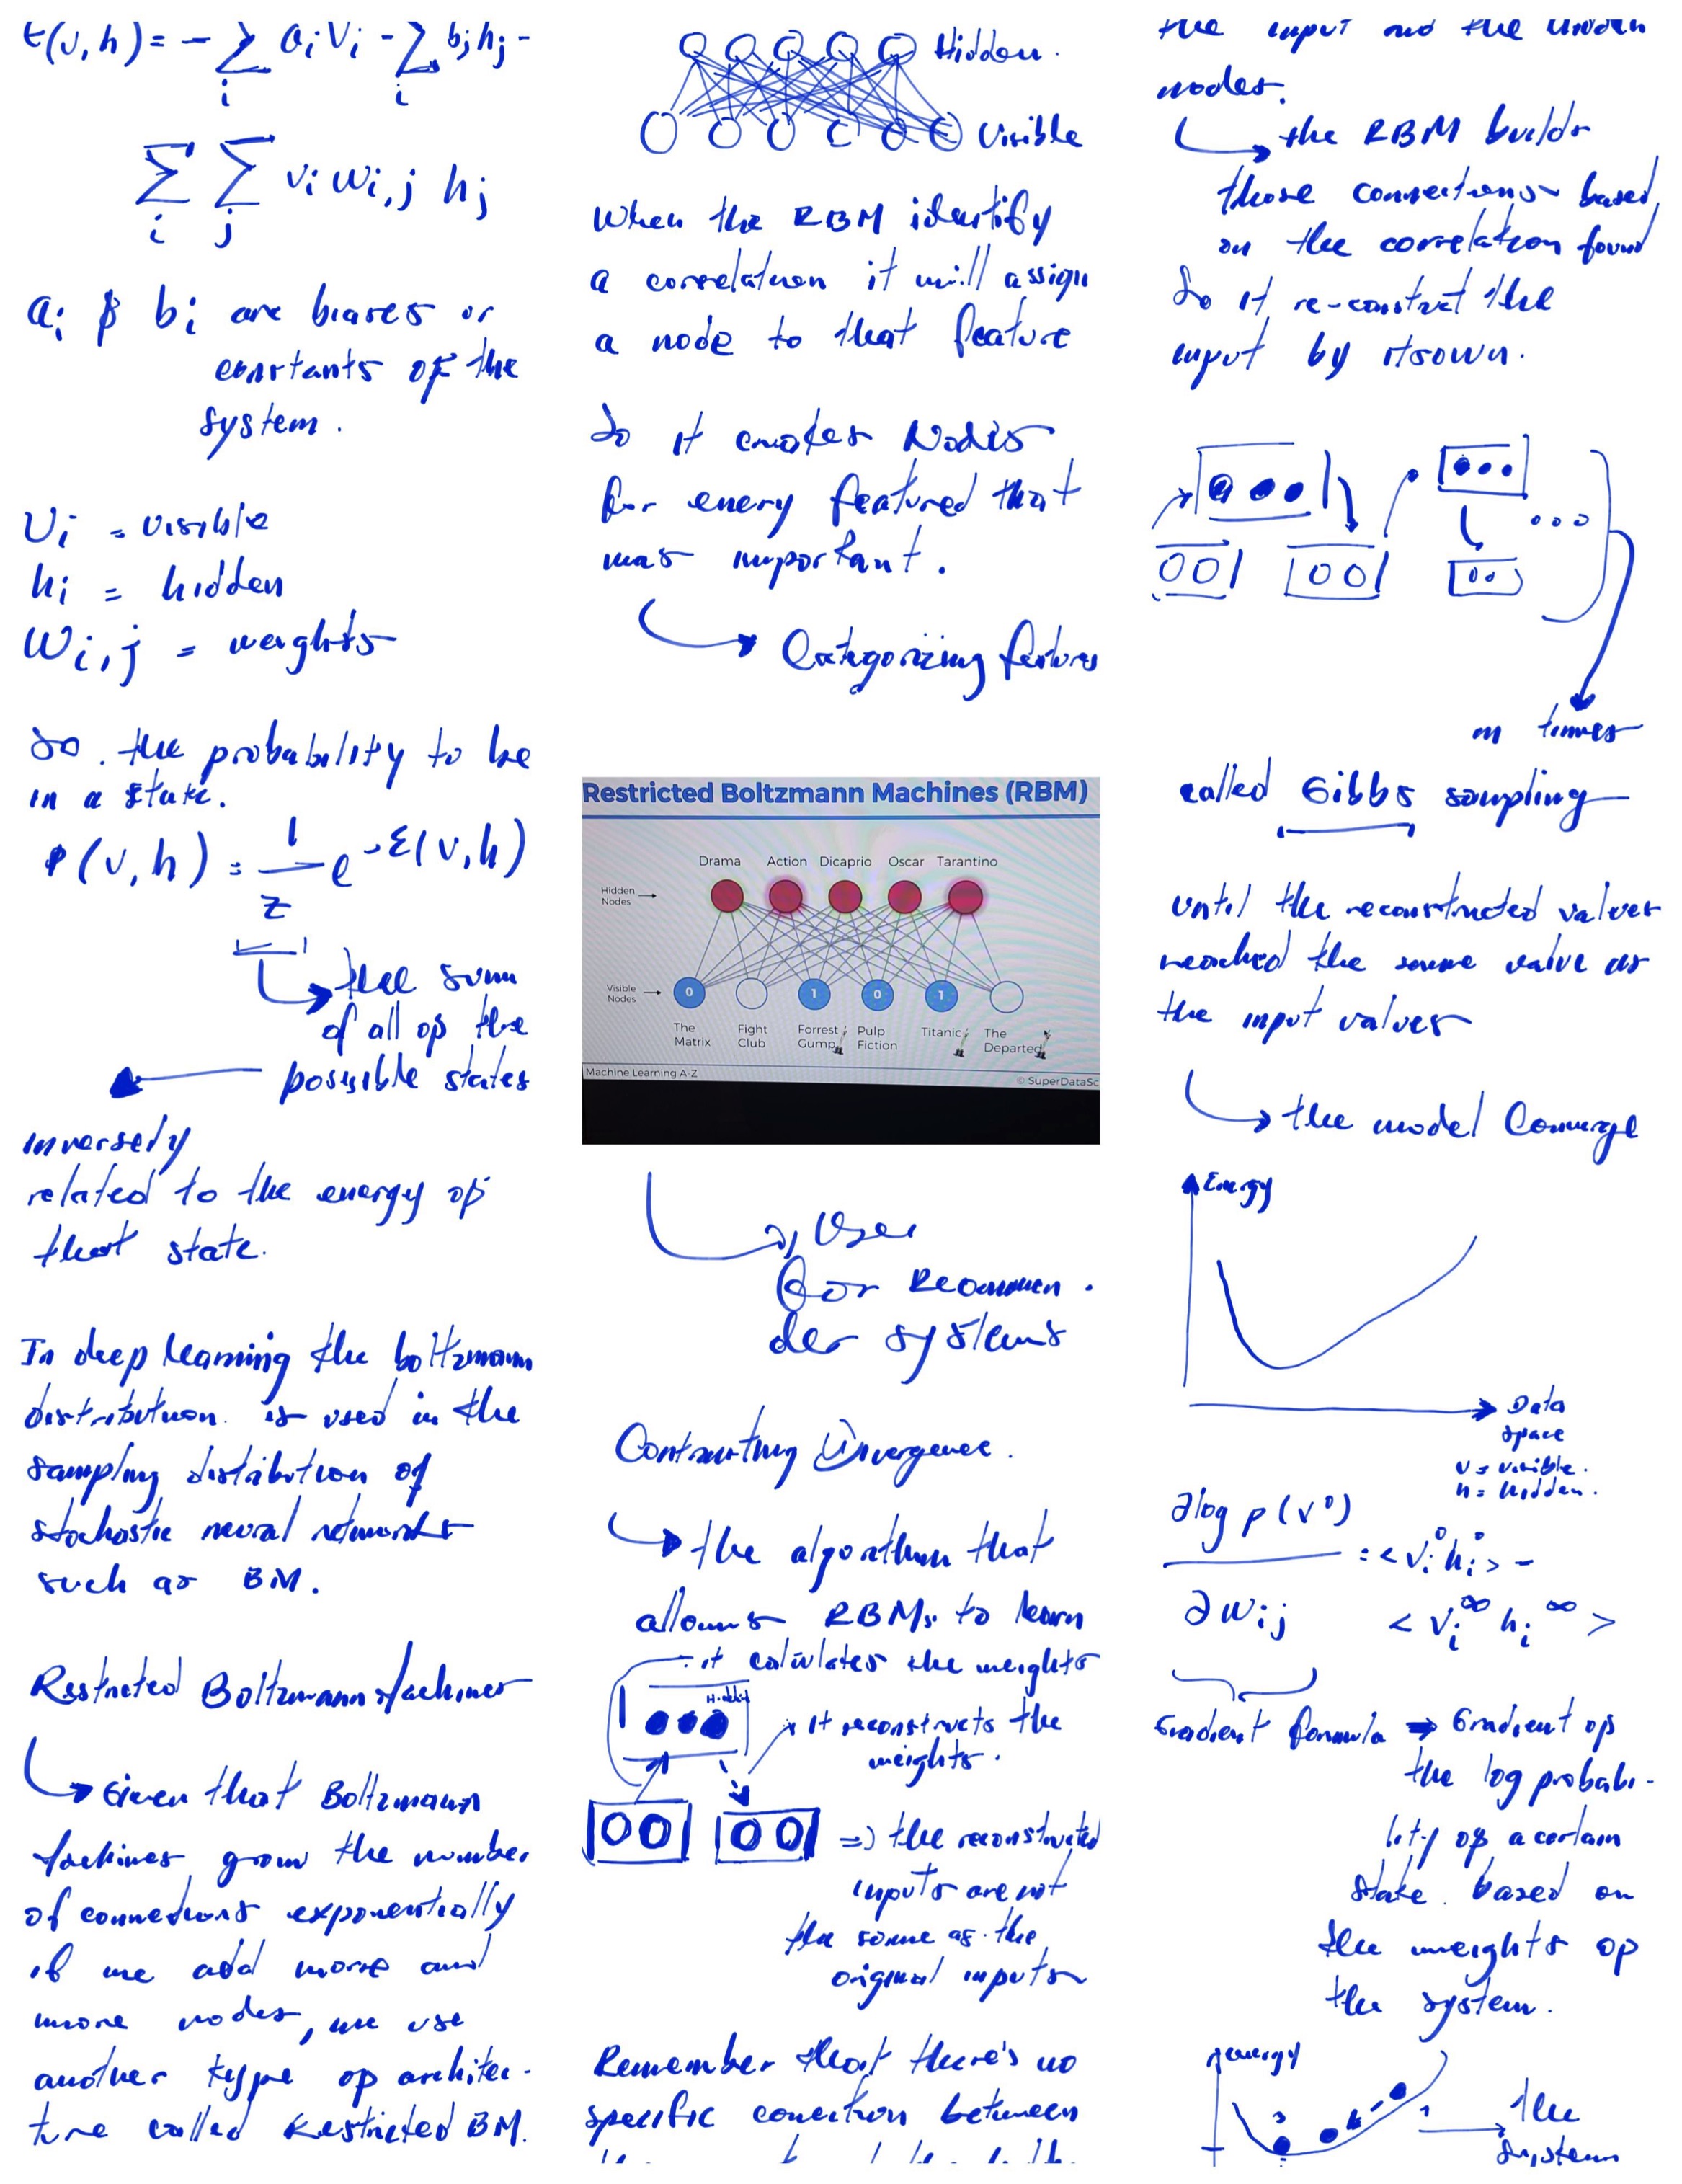 E(v,h) = - Σ aᵢ Vᵢ - Σ bⱼ hⱼ -
i i
Σ Σ vᵢ wᵢ,ⱼ hⱼ
i j
aᵢ & bᵢ are biases or
constants of the
system.
Vᵢ = visible
hᵢ = hidden
Wᵢ,ⱼ = weights
So. the probability to be
in a state.
P(v,h) = 1/Z e^-E(v,h)
the sum
of all op the
possible states
inversely
related to the energy of
that state.
In deep learning the boltzmann
distribution. is used in the
sampling distribution of
stochastic neural networks
such as BM.
Restricted Boltzmann Machines
Given that Boltzmann
Machines grow the number
of connections exponentially
if we add more and
more nodes, we use
another type op architec-
ture called Restricted BM.
Hidden.
Visible
When the RBM identify
a correlation it will assign
a node to that feature
So it creates Nodes
for every featured that
was important.
Categorizing features
Restricted Boltzmann Machines (RBM)
Drama Action Dicaprio Oscar Tarantino
Hidden
Nodes
Visible
Nodes
0 1 0 1
The
Matrix
Fight
Club
Forrest
Gump
Pulp
Fiction
Titanic
The
Departed
Machine Learning A-Z
© SuperDataSc
User
for Recommen.
der systems
Contrasting Divergence.
the algorithm that
allows RBMs to learn
it calculates the weights
Hidden
it reconstructs the
weights.
=) the reconstructed
inputs are not
the same as the
original inputs
Remember that there's no
specific conection between
the input and the hidden
nodes.
the RBM builds
those connections based
on the correlation found
So it re-constrct the
input by itsown.
m times
called Gibbs sampling
until the reconstructed values
reached the same value as
the input values
the model Converge
Energy
Data
space
v = visible.
h = hidden.
∂log p(v⁰)
= <vᵢ⁰hᵢ⁰> -
∂wᵢⱼ
<vᵢ^∞ hᵢ^∞>
Gradient formula → Gradient op
the log probabi-
lity of a certain
state. based on
the weights op
the system.
energy
the
system